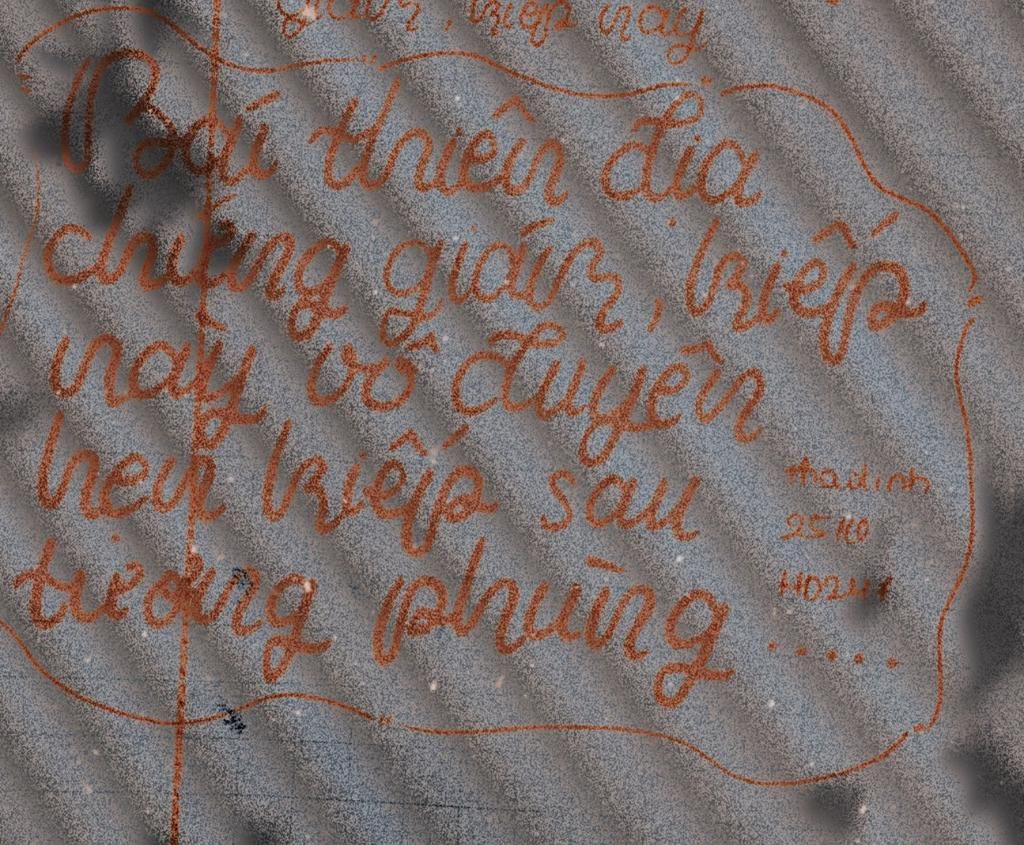 giám, kiếp này
Bái thiên địa
chứng giám, kiếp
này vô duyên
hẹn kiếp sau
tương phùng .....
25 10